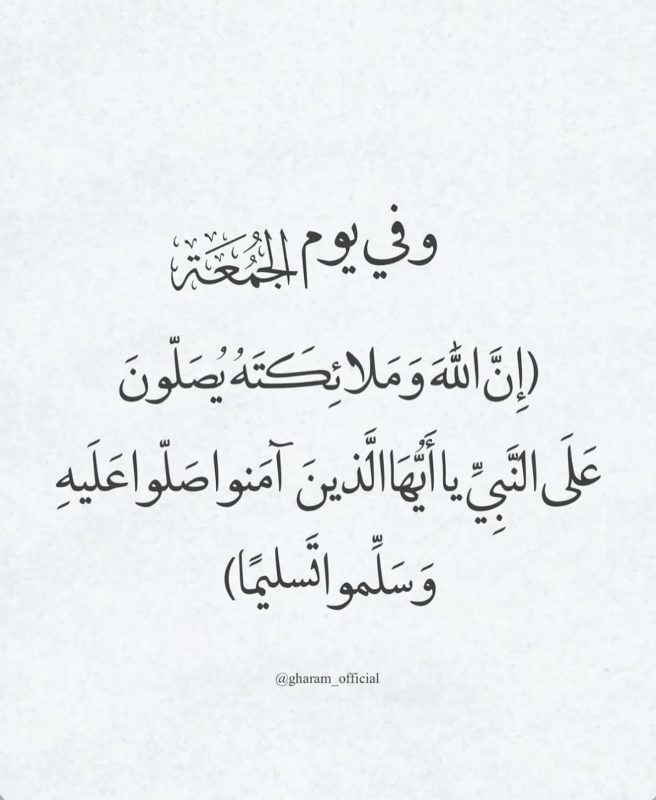 وفي يوم الجُمُعَة
(إِنَّ اللَّهَ وَمَلائِكَتَهُ يُصَلّونَ
عَلَى النَّبِيِّ يا أَيُّهَا الَّذينَ آمَنوا صَلّوا عَلَيهِ
وَسَلِّموا تَسليمًا)
@gharam_official